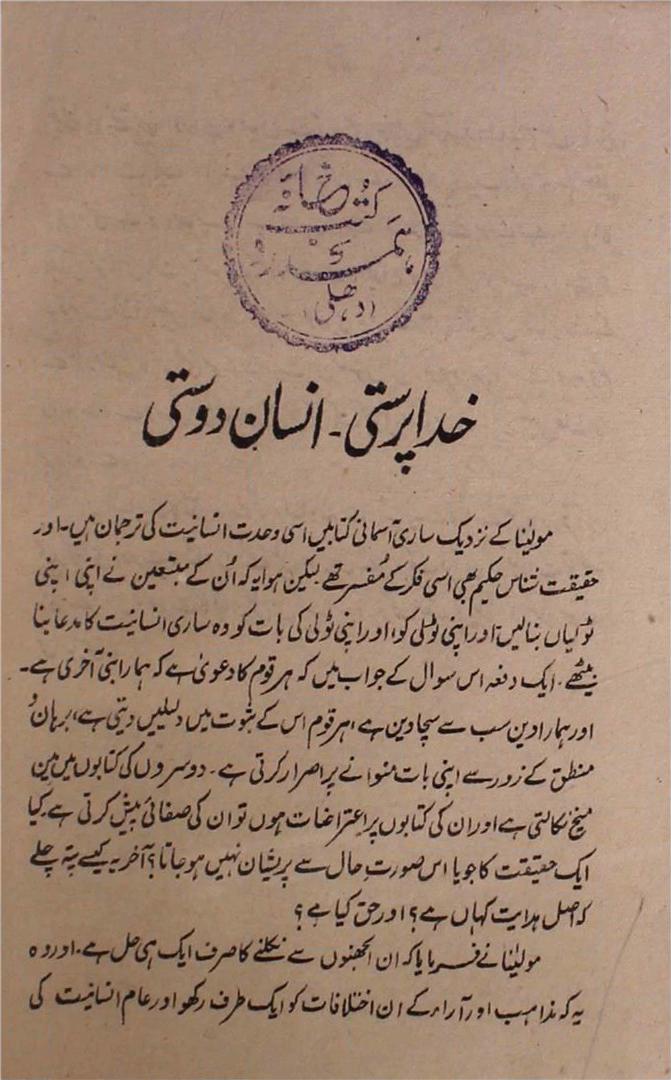 کتب خانہ
ہمدرد
(دھلی)
خدا پرستی ۔ انسان دوستی
مولینا کے نزدیک ساری آسمانی کتابیں اسی وحدت انسانیت کی ترجمان ہیں ۔ اور
حقیقت شناس حکیم بھی اسی فکر کے مُفسر تھے لیکن ہوا یہ کہ اُن کے متبعین نے اپنی اپنی
ٹولیاں بنا لیں اور اپنی ٹولی کو اور اپنی ٹولی کی بات کو وہ ساری انسانیت کا مدعا بنا
بیٹھے ۔ ایک دفعہ اس سوال کے جواب میں کہ ہر قوم کا دعویٰ ہے کہ ہمارا نبی آخری ہے ۔
اور ہمارا دین سب سے سچا دین ہے، ہر قوم اس کے ثبوت میں دلیلیں دیتی ہے، برہان وُ
منطق کے زور سے اپنی بات منوانے پر اصرار کرتی ہے ۔ دوسروں کی کتابوں میں مین
میخ نکالتی ہے اور ان کی کتابوں پر اعتراضات ہوں تو ان کی صفائی پیش کرتی ہے کیا
ایک حقیقت کا جویا اس صورتِ حال سے پریشان نہیں ہو جاتا؟ آخر یہ کیسے پتہ چلے
کہ اصل ہدایت کہاں ہے؟ اور حق کیا ہے؟
مولینا نے فرمایا کہ ان الجھنوں سے نکلنے کا صرف ایک ہی حل ہے۔ اور وہ
یہ کہ مذاہب اور آراء کے ان اختلافات کو ایک طرف رکھو اور عام انسانیت کی